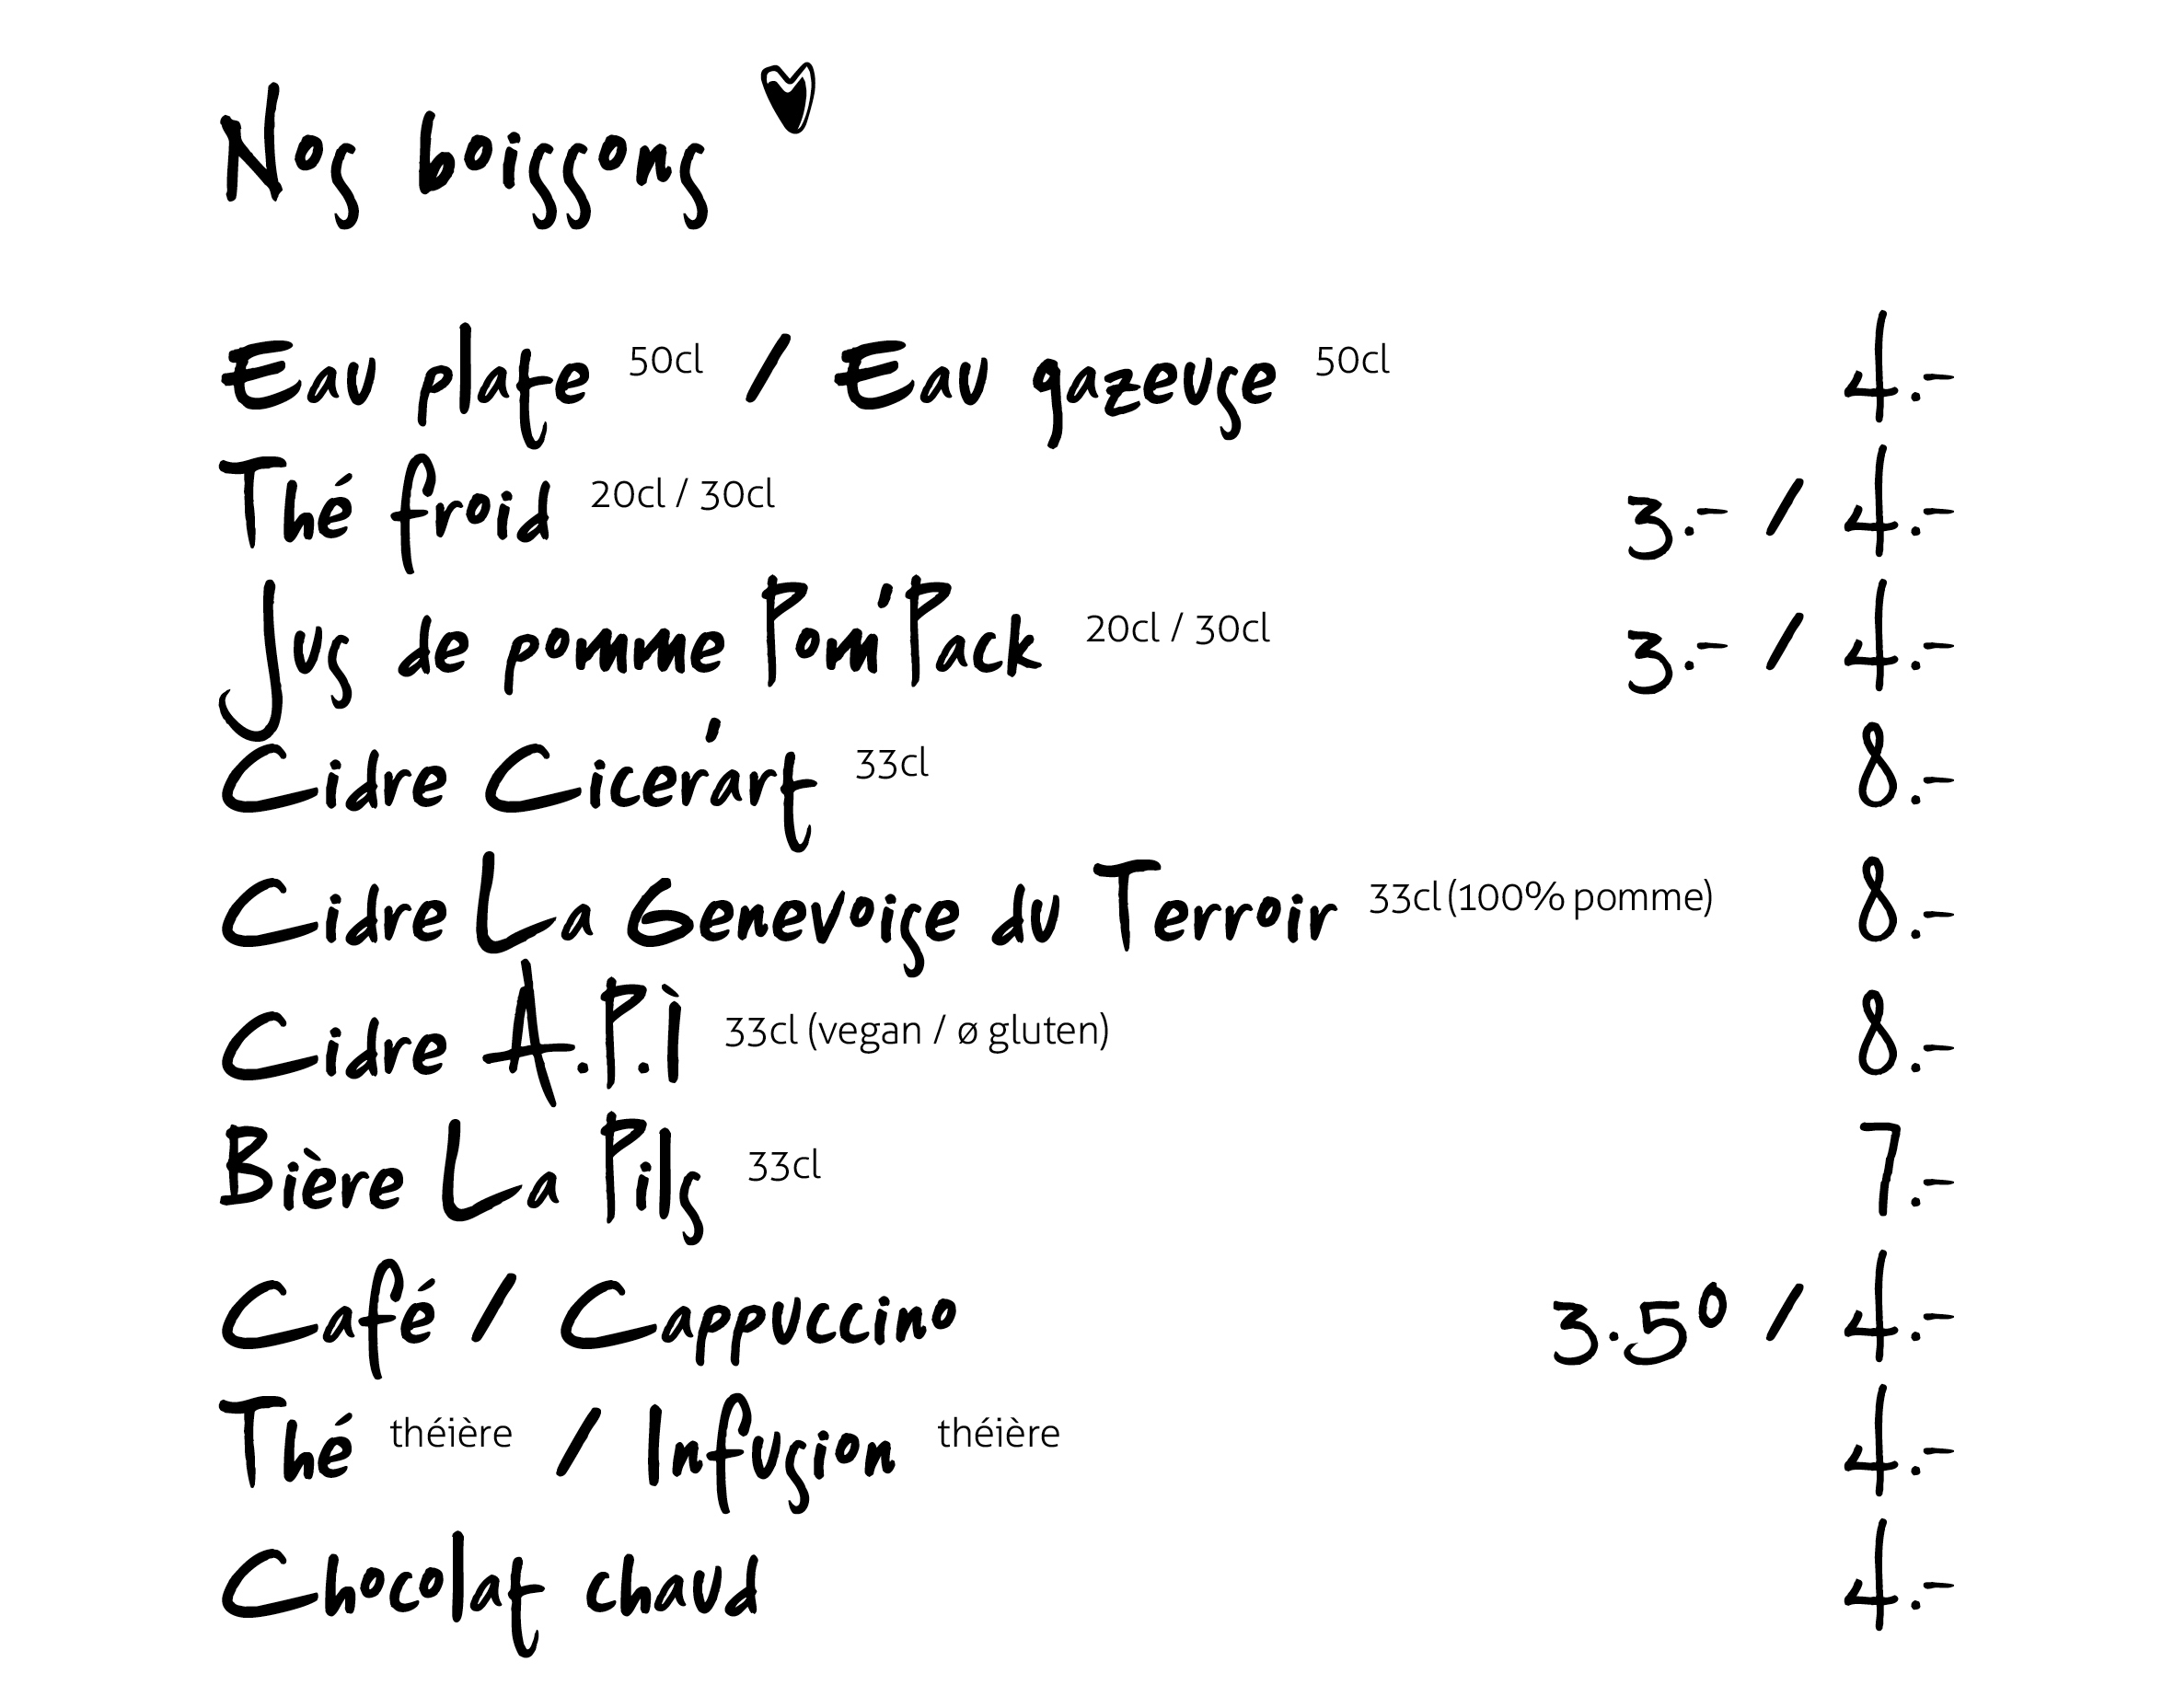 Nos boissons
Eau plate 50cl / Eau gazeuse 50cl 4.-
Thé froid 20cl / 30cl 3.- / 4.-
Jus de pomme Pom'Pack 20cl / 30cl 3.- / 4.-
Cidre Cicer'art 33cl 8.-
Cidre La Genevoise du Terroir 33cl (100% pomme) 8.-
Cidre A.P.Ì 33cl (vegan / ø gluten) 8.-
Bière La Pils 33cl 7.-
Café / Cappuccino 3.50 / 4.-
Thé théière / Infusion théière 4.-
Chocolat chaud 4.-